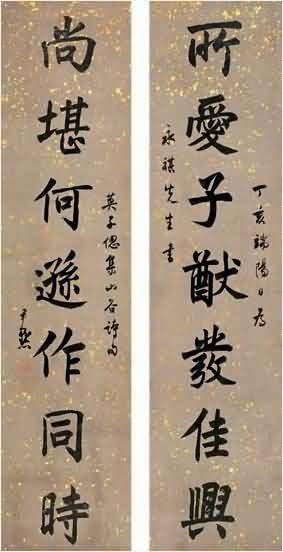 所愛子猷發佳興
丁亥瑞陽日為
永祺先生書
尚堪何遜作同時
莫子偲集山谷詩句
尹默